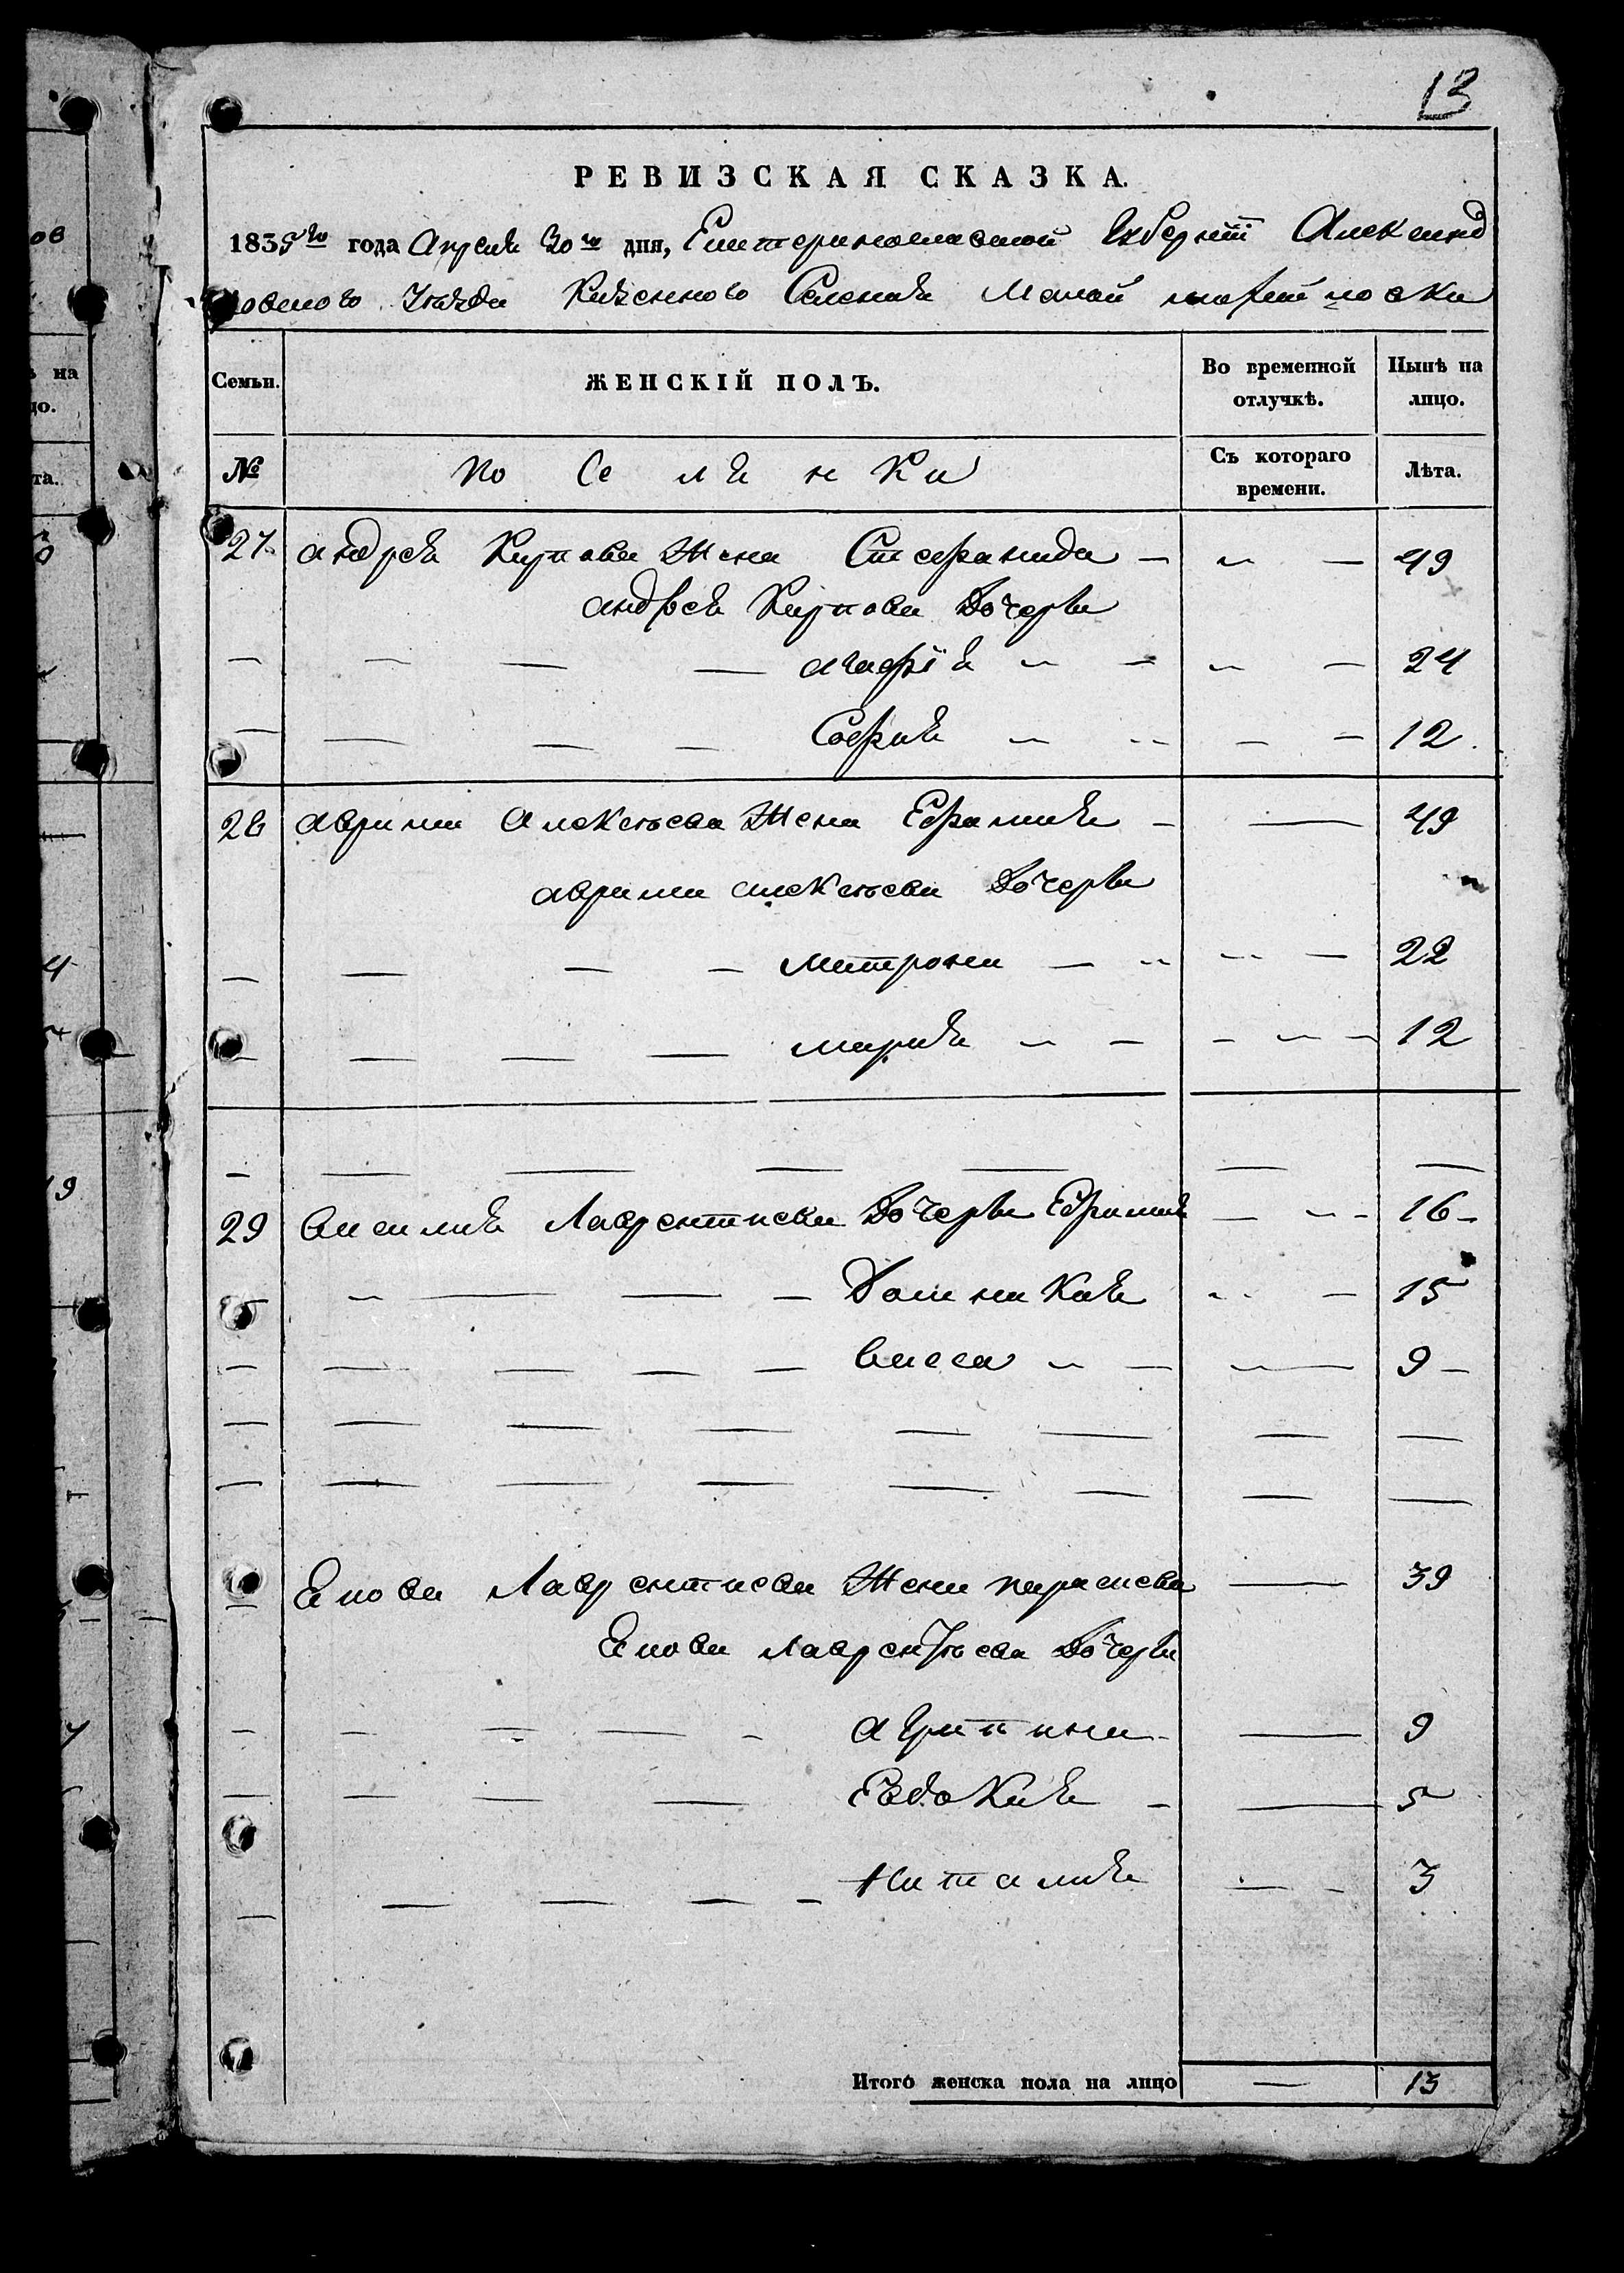 13
РЕВИЗСКАЯ СКАЗКА.
1835го года Апреля 30го дня, Екатеринославской Губернiи Александ
ровского Уезда Казенного Селения Малой
Семьи. ЖЕНСКІЙ ПОЛЪ. Во временной отлучкѣ. Нынѣ на лицо.
№ По Се ля н Ки Съ котораго времени. Лѣта.
27 андрея Карпова Жена Стефанида 49
андрея Карпова Дочери
агафiя 24
София 12
28 Алексеева Жена Ефимия 49
алексеева Дочери
матрона 22
мария 12
29 Василия Лаврентиева Дочери Ефимия 16
Домникия 15
Васса 9
Якова Лаврентиева Жена параскева 39
Якова лаврентьева Дочери
агрипина 9
Евдокия 5
Наталия 3
Итого женска пола на лицо 13
ов
ѣ на
цо.
та.